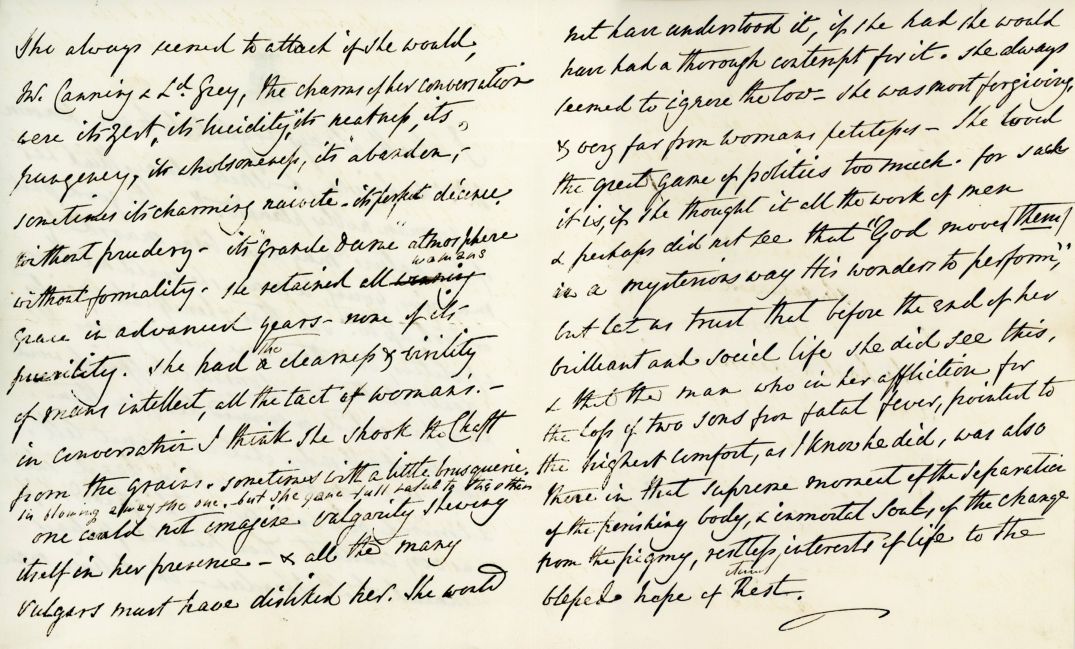 She always seemed to attach if she would,
Mr. Canning & Ld. Grey, the charms of her conversation
were its zest, its lucidity, its neatness, its
pungency, its wholesomeness, its abandon,
sometimes its charming naiveté - its perfect décence
without prudery - its "Grande Dame" atmosphere
without formality. She retained all womans
Grace in advanced years - none of its
puerility. She had the clearness & virility
of mans intellect, all the tact of womans. -
in conversation I think she shook the Chaff
from the grains. sometimes with a little brusquerie
in blowing away the one, but she gave full value to the other
one could not imagine vulgarity shewing
itself in her presence - & all the many
vulgars must have disliked her. She would
not have understood it, if she had she would
have had a thorough contempt for it. She always
seemed to ignore the low - she was most forgiving,
& very far from womans petitesses - She loved
the great Game of politics too much. for sad
it is, if she thought it all the work of men
& perhaps did not see that "God moves them
in a mysterious way His wonders to perform,"
but let us trust that before the end of her
brilliant and social life she did see this,
& that the man who in her affliction for
the loss of two sons from fatal fever, pointed to
the highest comfort, as I know he did, was also
there in that supreme moment of the separation
of the perishing body, & immortal Soul, of the change
from the pigmy, restless interests of life to the
blessed hope of Rest.